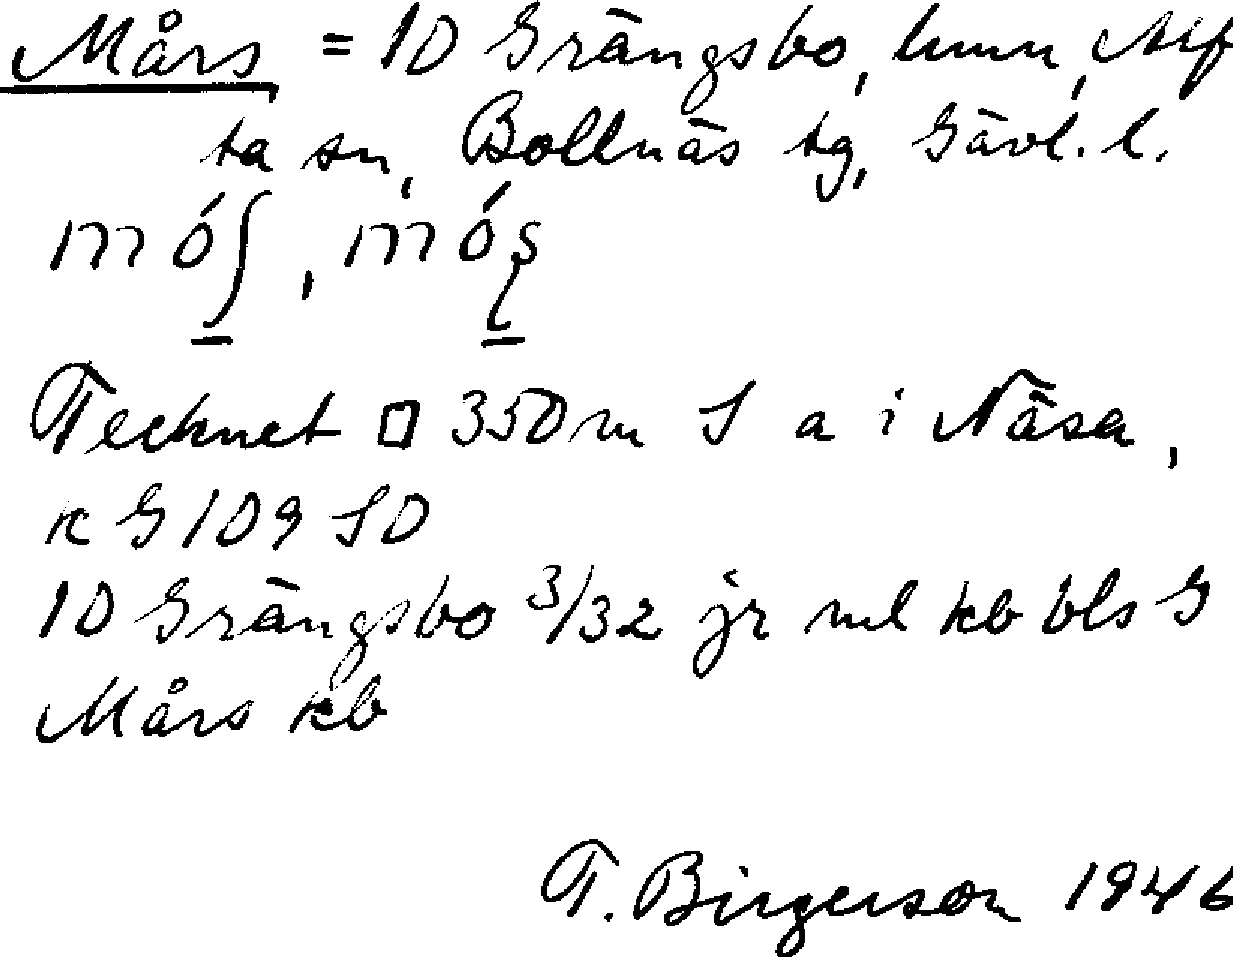 Mårs = 10 Grängsbo, hmn, Alf
ta sn, Bollnäs tg, Gävl. l.
Tecknet □ 350 m S a i Näsa,
k G 109 SO
10 Grängsbo 3/32 jr ml kb bls G
Mårs kb
T. Birgerson 1946